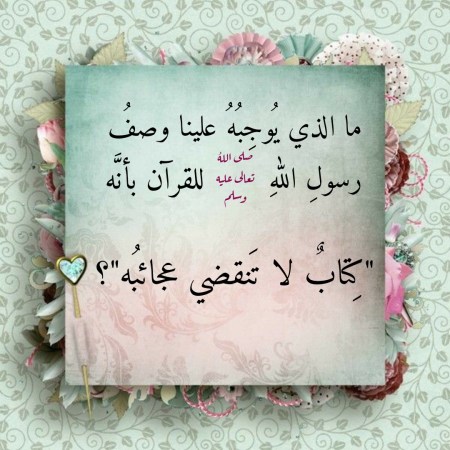 ما الذي يُوجِبُهُ علينا وصفُ
رسولِ اللهِ صلى الله تعالى عليه وسلم للقرآن بأنَّه
"كِتابٌ لا تَنقضي عجائبُه"؟